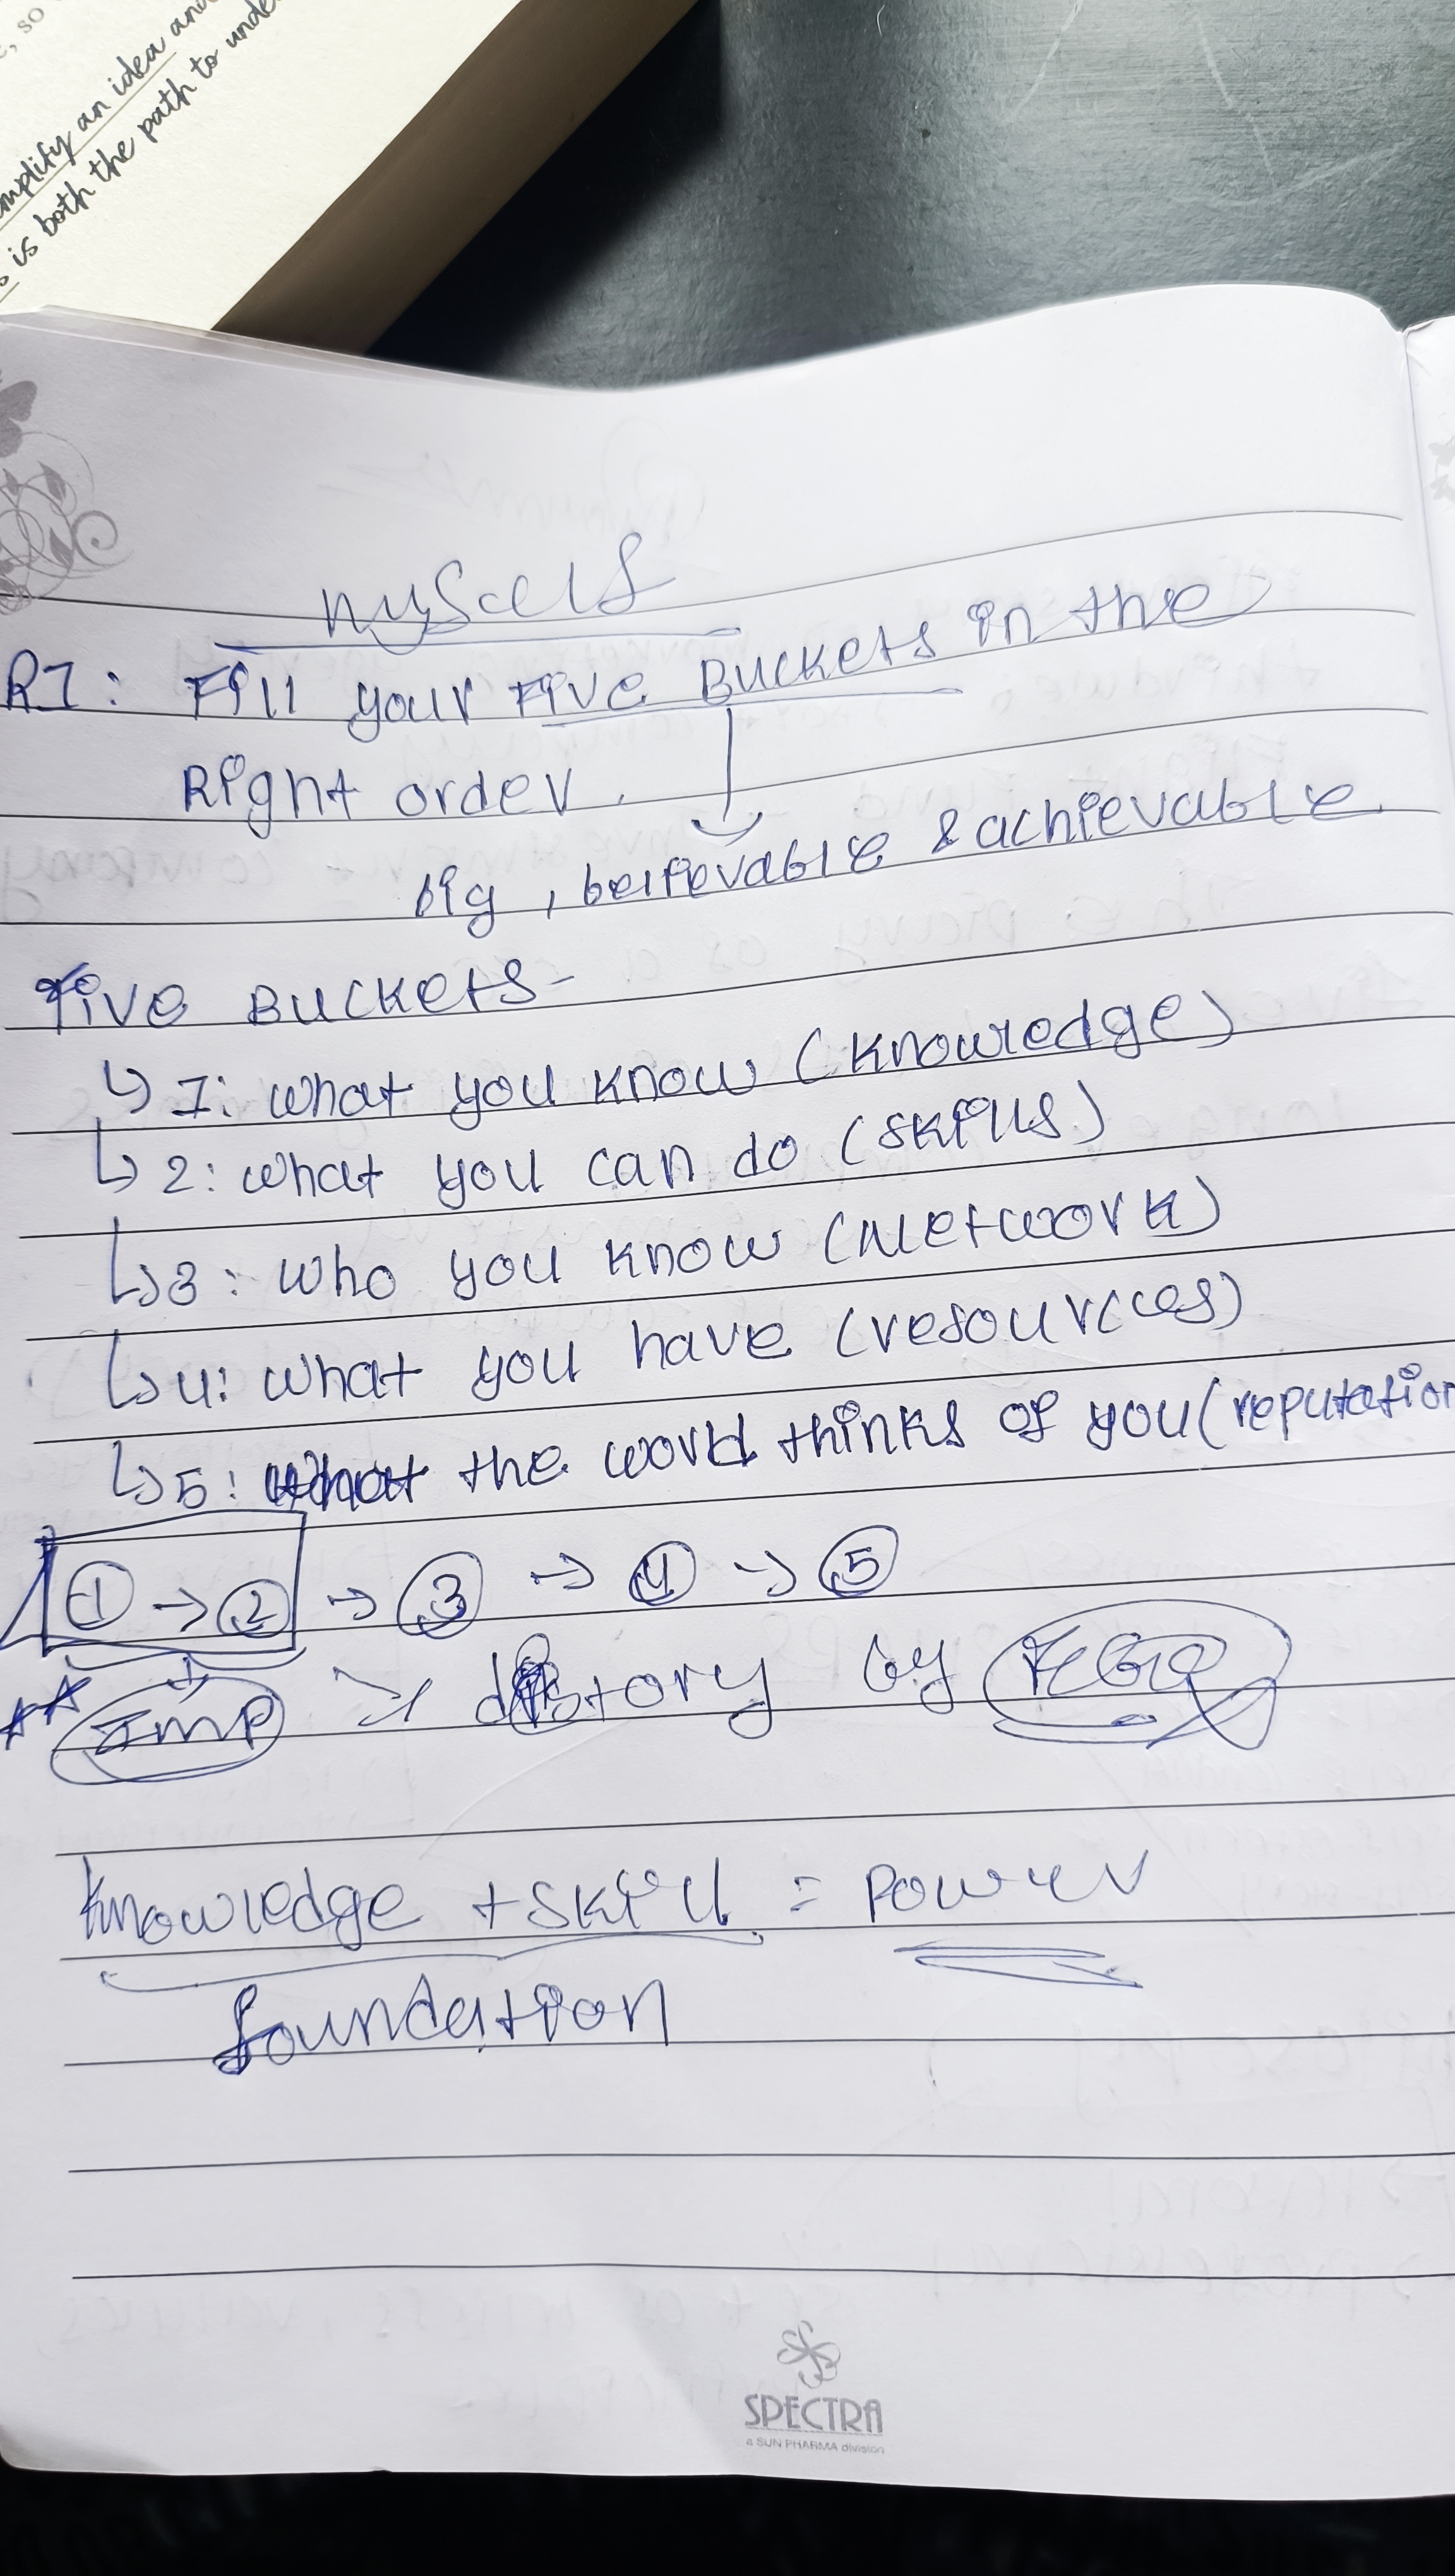 mplify an idea and
is both the path to unde
myself
R1: Fill your Five Buckets in the
Right order.
big, believable & achievable
Five Buckets-
↳ 1: what you know (knowledge)
↳ 2: what you can do (skills)
↳ 3: who you know (Network)
↳ 4: what you have (resources)
↳ 5: what the world thinks of you (reputation
① → ② → ③ → ④ → ⑤
★★ Imp → distory by EGO
knowledge + skill = power
foundation
SPECTRA
a SUN PHARMA division